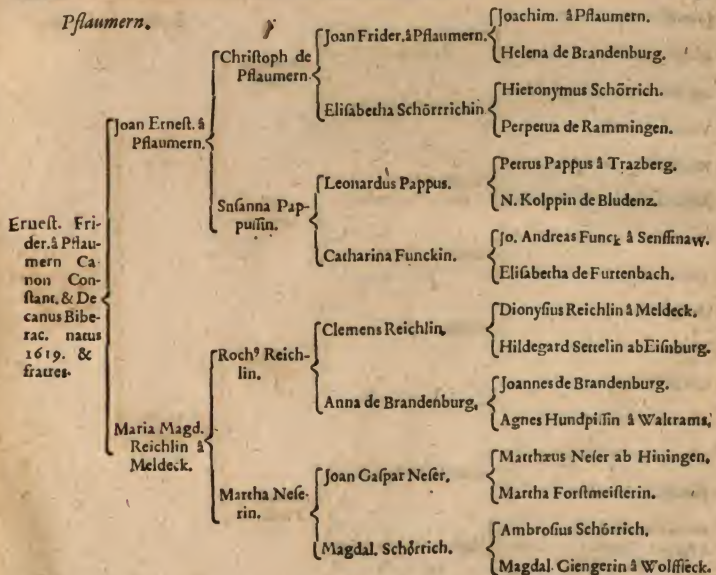 Pflaumern.
Erneſt. Fri-
der. â Pflau-
mern Ca-
non Con-
ſtant. & De
canus Bibe-
rac. natus
1619. &
fratres.
Joan Erneſt. â
Pflaumern.
Maria Magd.
Reichlin â
Meldeck.
Chriſtoph de
Pflaumern.
Snſanna Pap-
puſſin.
Roch⁹ Reich-
lin.
Martha Neſe-
rin.
Joan Frider. â Pflaumern.
Eliſabetha Schörrrichin
Leonardus Pappus.
Catharina Funckin.
Clemens Reichlin,
Anna de Brandenburg,
Joan Gaſpar Neſer,
Magdal. Schörrich.
Joachim. â Pflaumern.
Helena de Brandenburg.
Hieronymus Schörrich.
Perpetua de Rammingen.
Petrus Pappus â Trazberg.
N. Kolppin de Bludenz.
Jo. Andreas Funck â Senfftnaw.
Eliſabetha de Furtenbach.
Dionyſius Reichlin â Meldeck.
Hildegard Settelin ab Eiſnburg.
Joannes de Brandenburg.
Agnes Hundpiſſin â Waltrams.
Matthæus Neſer ab Hiningen.
Martha Forſtmeiſterin.
Ambroſius Schörrich,
Magdal. Giengerin â Wolffſeck.